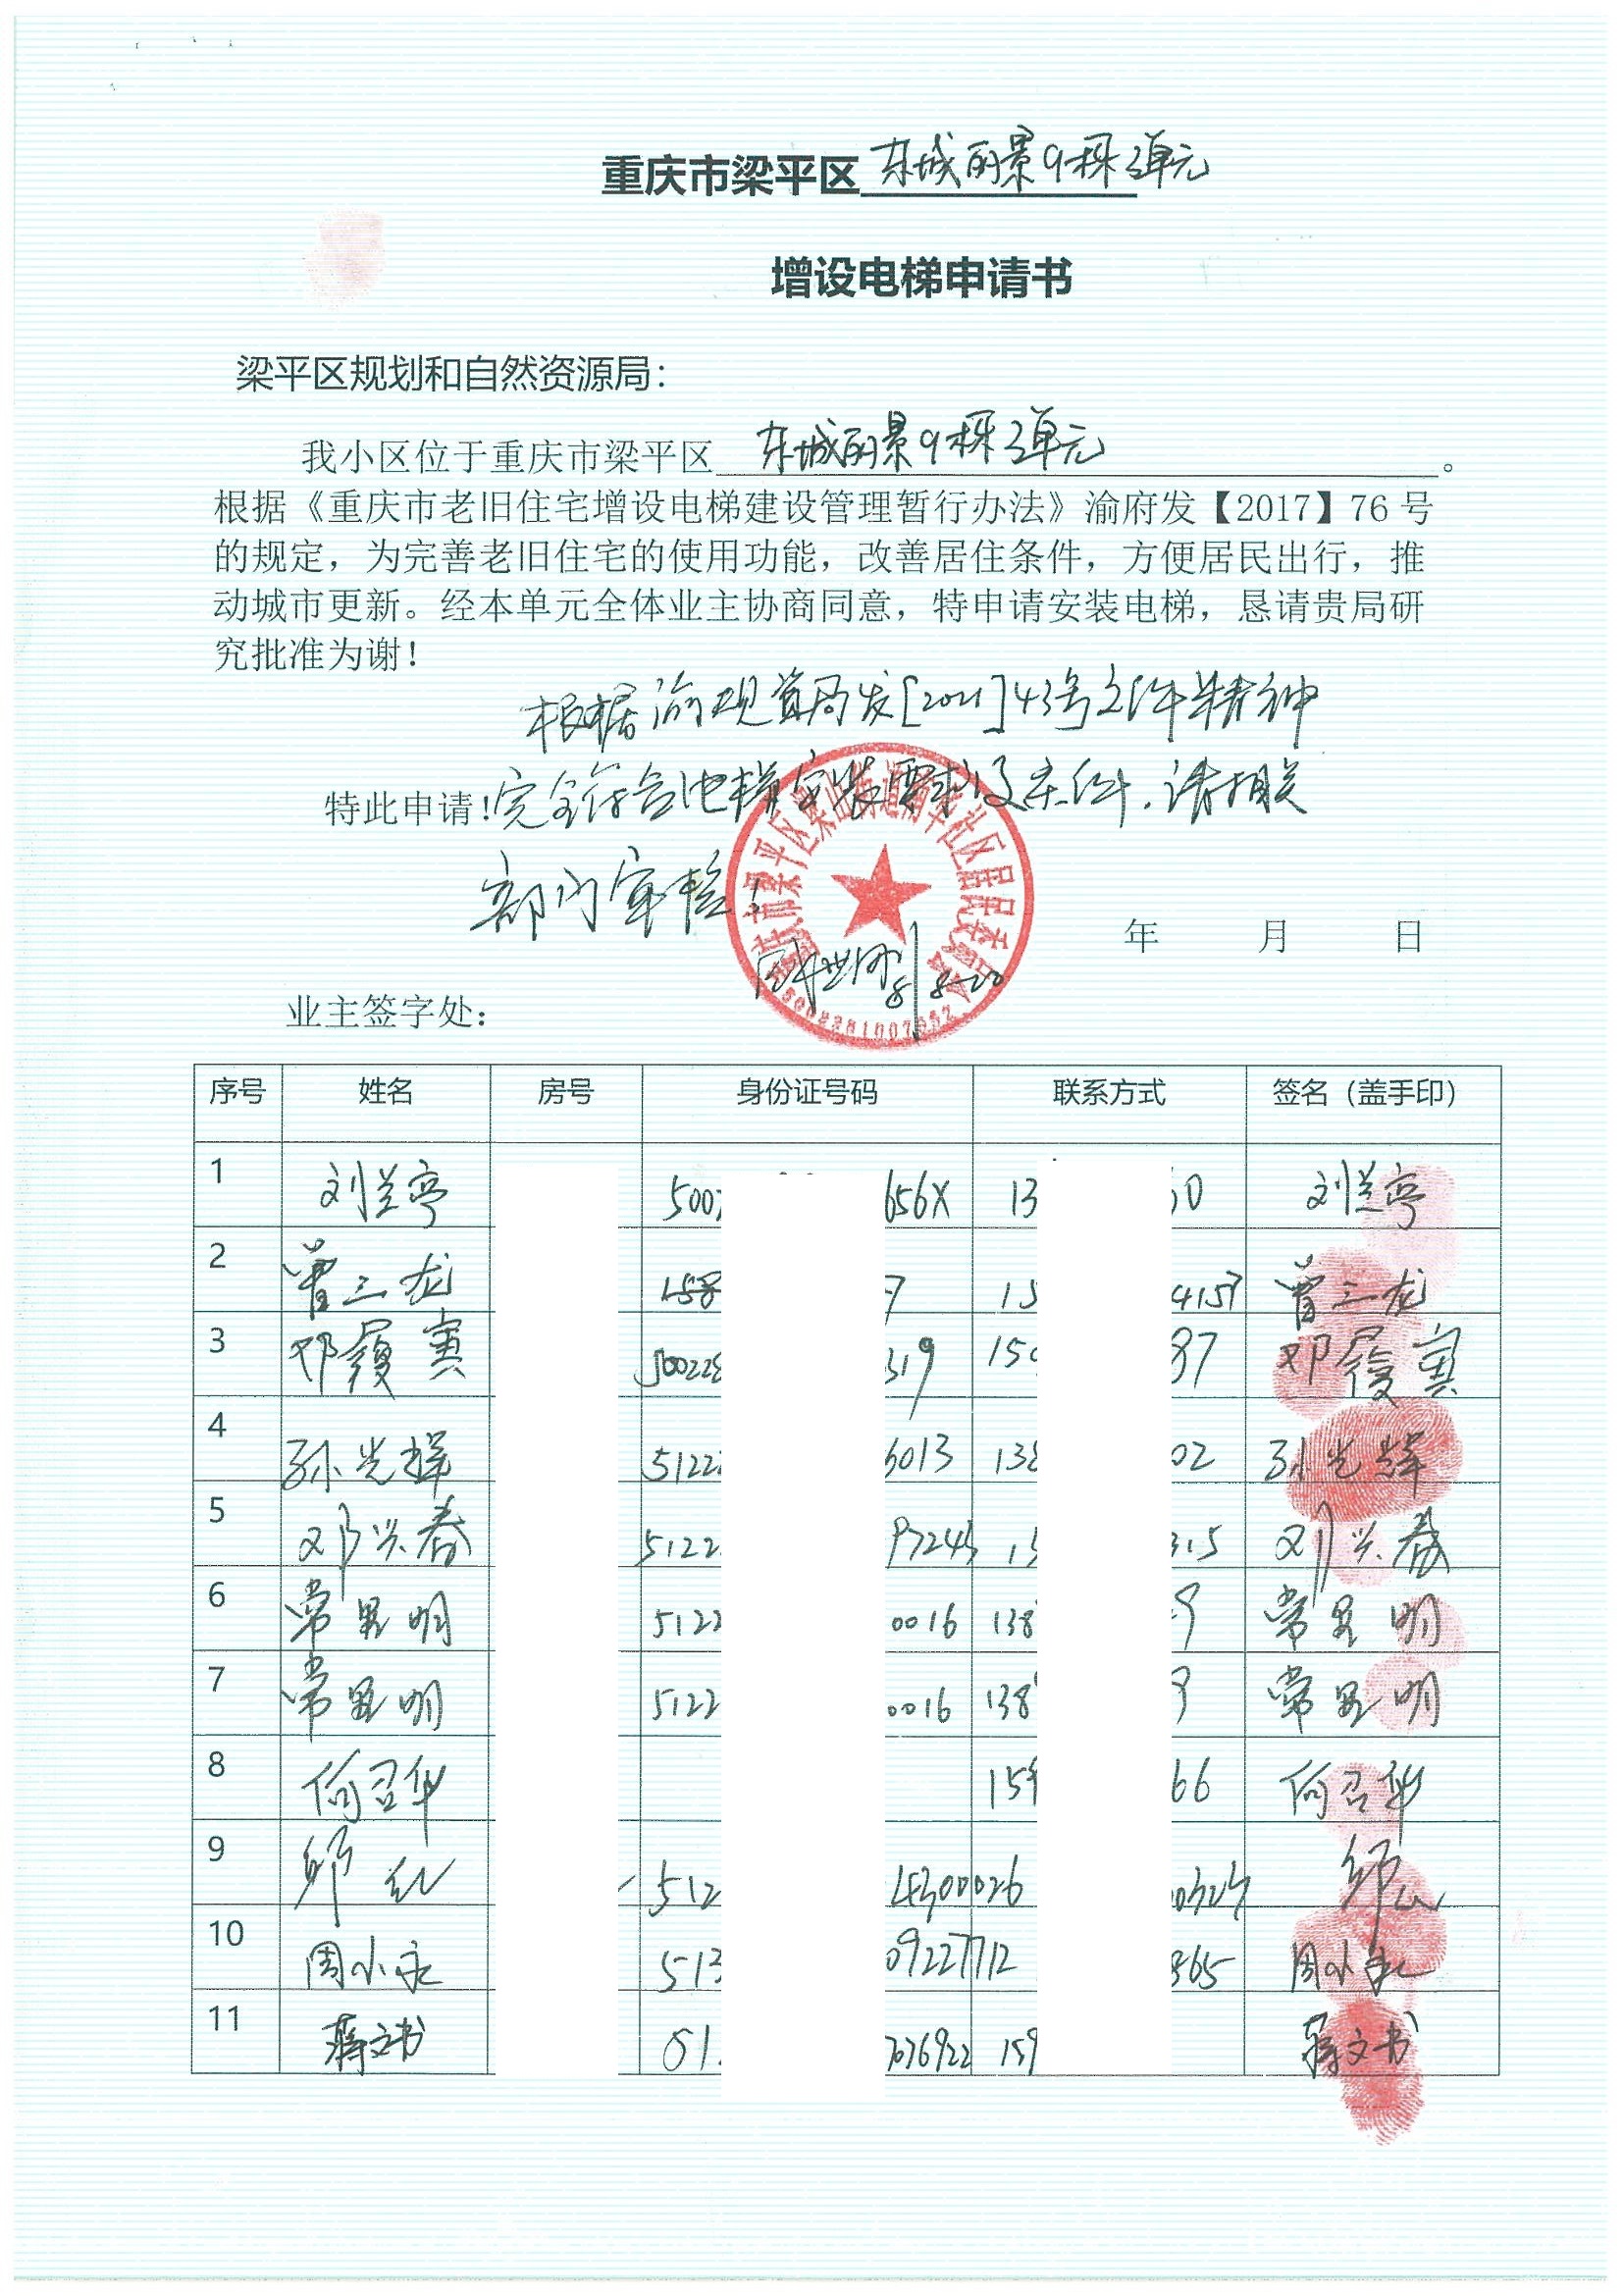 重庆市梁平区东城丽景9栋2单元
增设电梯申请书
梁平区规划和自然资源局:
我小区位于重庆市梁平区 东城丽景9栋2单元 。
根据《重庆市老旧住宅增设电梯建设管理暂行办法》渝府发【2017】76号
的规定，为完善老旧住宅的使用功能，改善居住条件，方便居民出行，推
动城市更新。经本单元全体业主协商同意，特申请安装电梯，恳请贵局研
究批准为谢!
根据渝规资局发[2021]43号文件精神
特此申请!完全符合电梯安装要求及条件.请相关
部门审检!
年 月 日
8-20
业主签字处:
序号 姓名 房号 身份证号码 联系方式 签名（盖手印）
1 刘兰亭 500 656X 13 0 刘兰亭
2 曾三龙 158 7 15 4157 曾三龙
3 邓履寅 500228 319 150 87 邓履寅
4 孙光辉 5122 6013 138 02 孙光辉
5 邓兴春 5122 97245 15 315 邓兴春
6 常昱明 5122 0016 138 9 常昱明
7 常昱明 5122 0016 138 9 常昱明
8 何召华 159 66 何召华
9 邹红 512 4300026 邹红
10 周小永 513 09227712 365 周小永
11 蒋文书 51 7076922 159 蒋文书